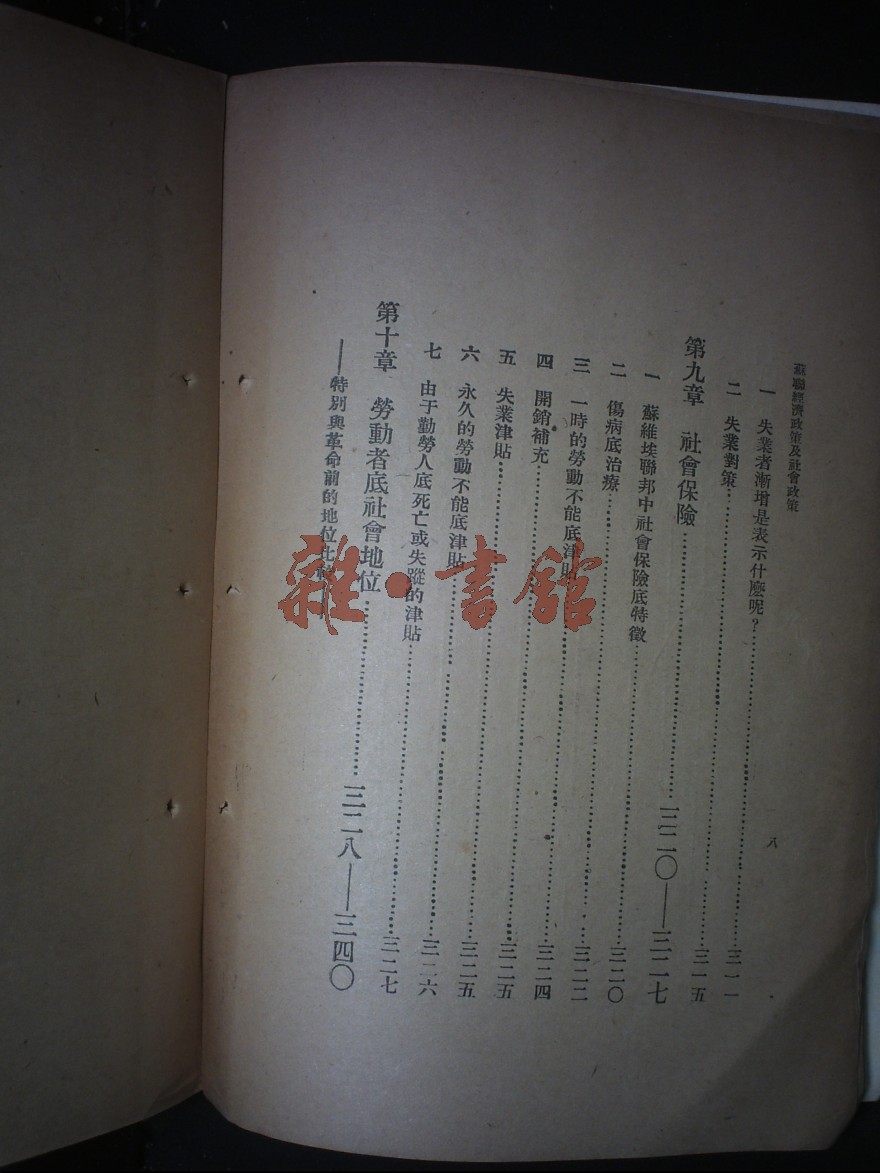 蘇聯經濟政策及社會政策
八
一 失業者漸增是表示什麼呢？……三一一
二 失業對策……三一五
第九章 社會保險……三二〇——三二七
一 蘇維埃聯邦中社會保險底特徵……三二〇
二 傷病底治療……三二二
三 一時的勞動不能底津貼……三二四
四 開銷補充……三二五
五 失業津貼……三二五
六 永久的勞動不能底津貼……三二六
七 由于勤勞人底死亡或失蹤的津貼……三二七
第十章 勞動者底社會地位……三二八——三四〇
——特別與革命前的地位比較
雜·書館